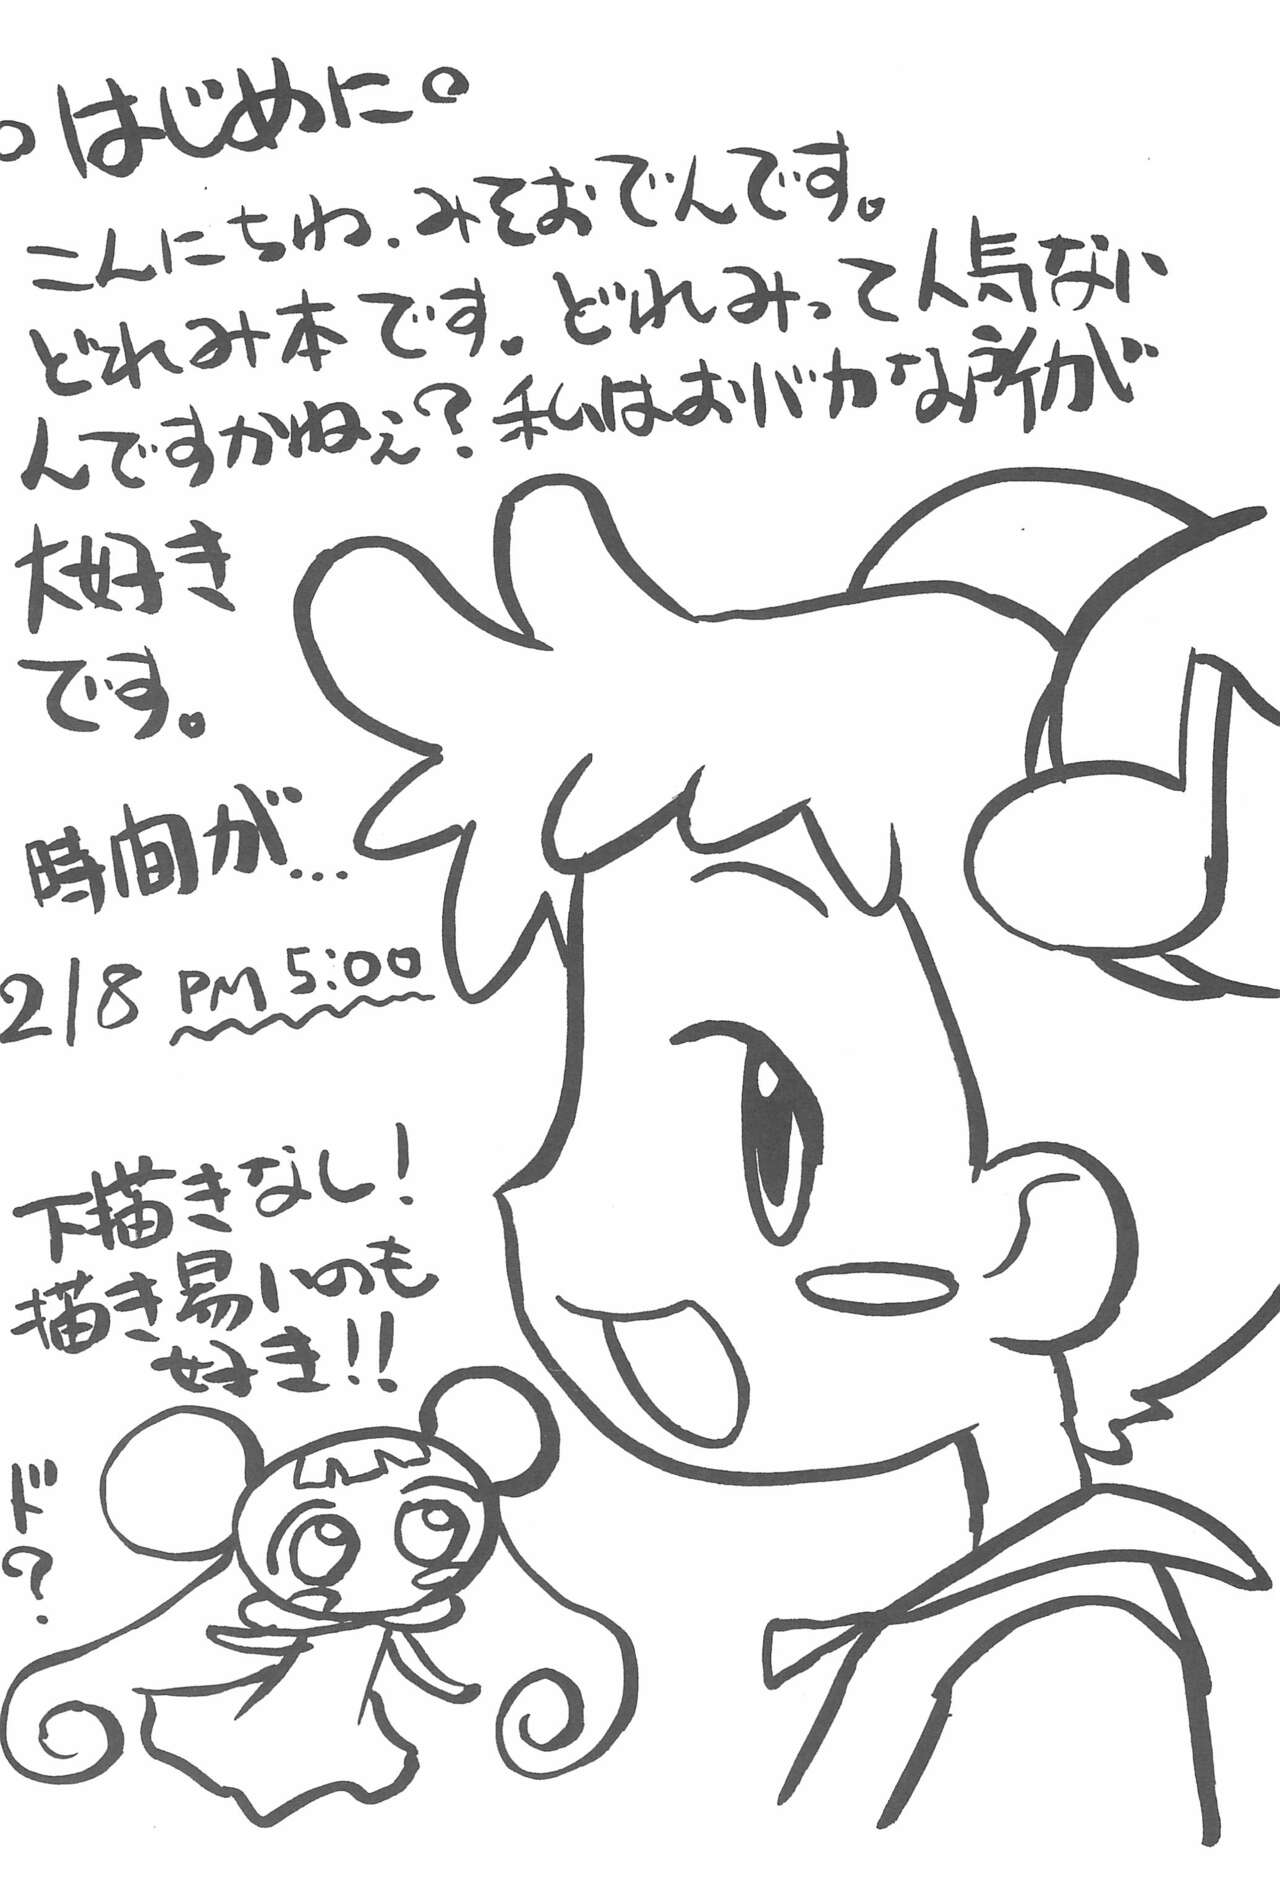 はじめに
こんにちわ、みそおでんです。
どれみ本です。どれみって人気ない
んですかねぇ?私はおバカな所が
大好き
です。
時間が…
2/8 PM 5:00
下描きなし!
描き易いのも
好き!!
ド?